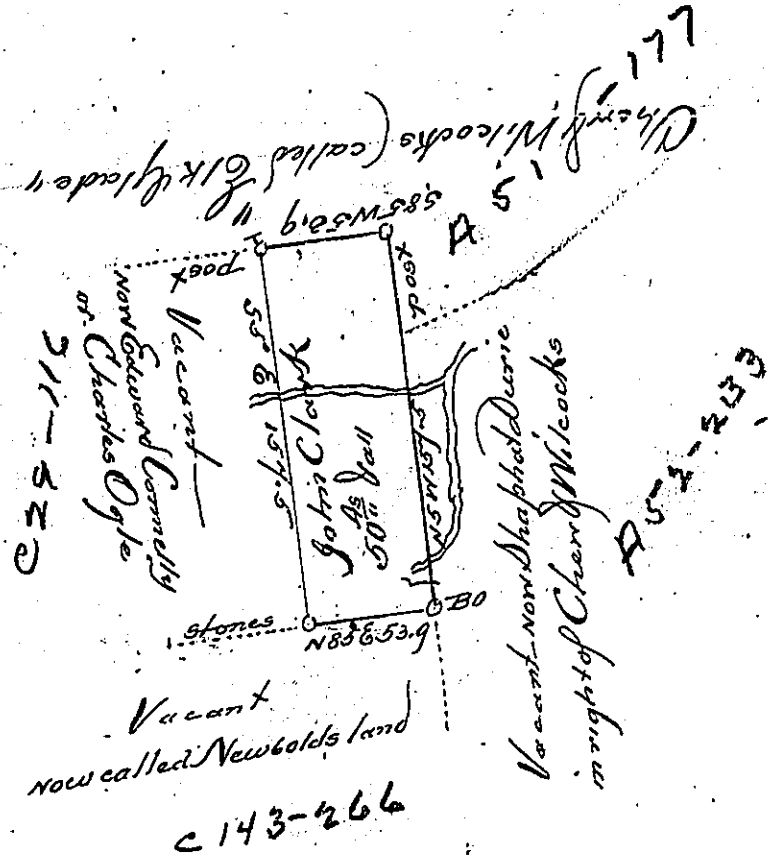 Chew Wilcocks (called "Elk Glade"
A 5, 177
S85W53.9
post
post
Vacant
Now Edward Connelly
or Charles Ogle
C 29-116
S5°E 157.5
John Clark
50 As & all
N5W157.5
Vacant-Now Shaphat Durie
in right of Chew & Wilcocks
A 5-2-233
stones
N85E53.9
BO
Vacant
Now called Newbolds land
C 143-266